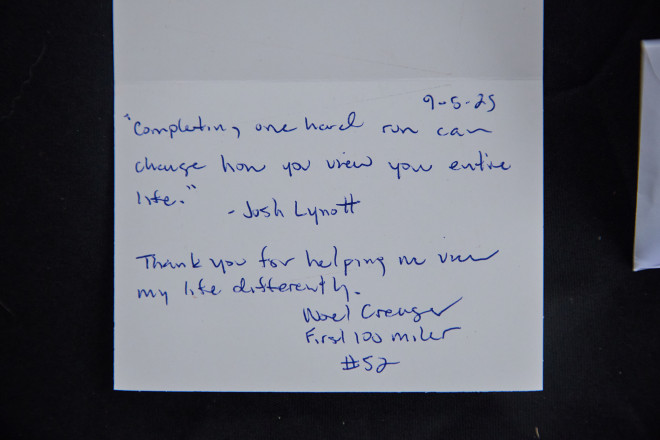 9-5-25
"Completing one hard run can
change how you view you entire
life."
- Josh Lynott
Thank you for helping me view
my life differently.
Noel Creager
First 100 miler
#52